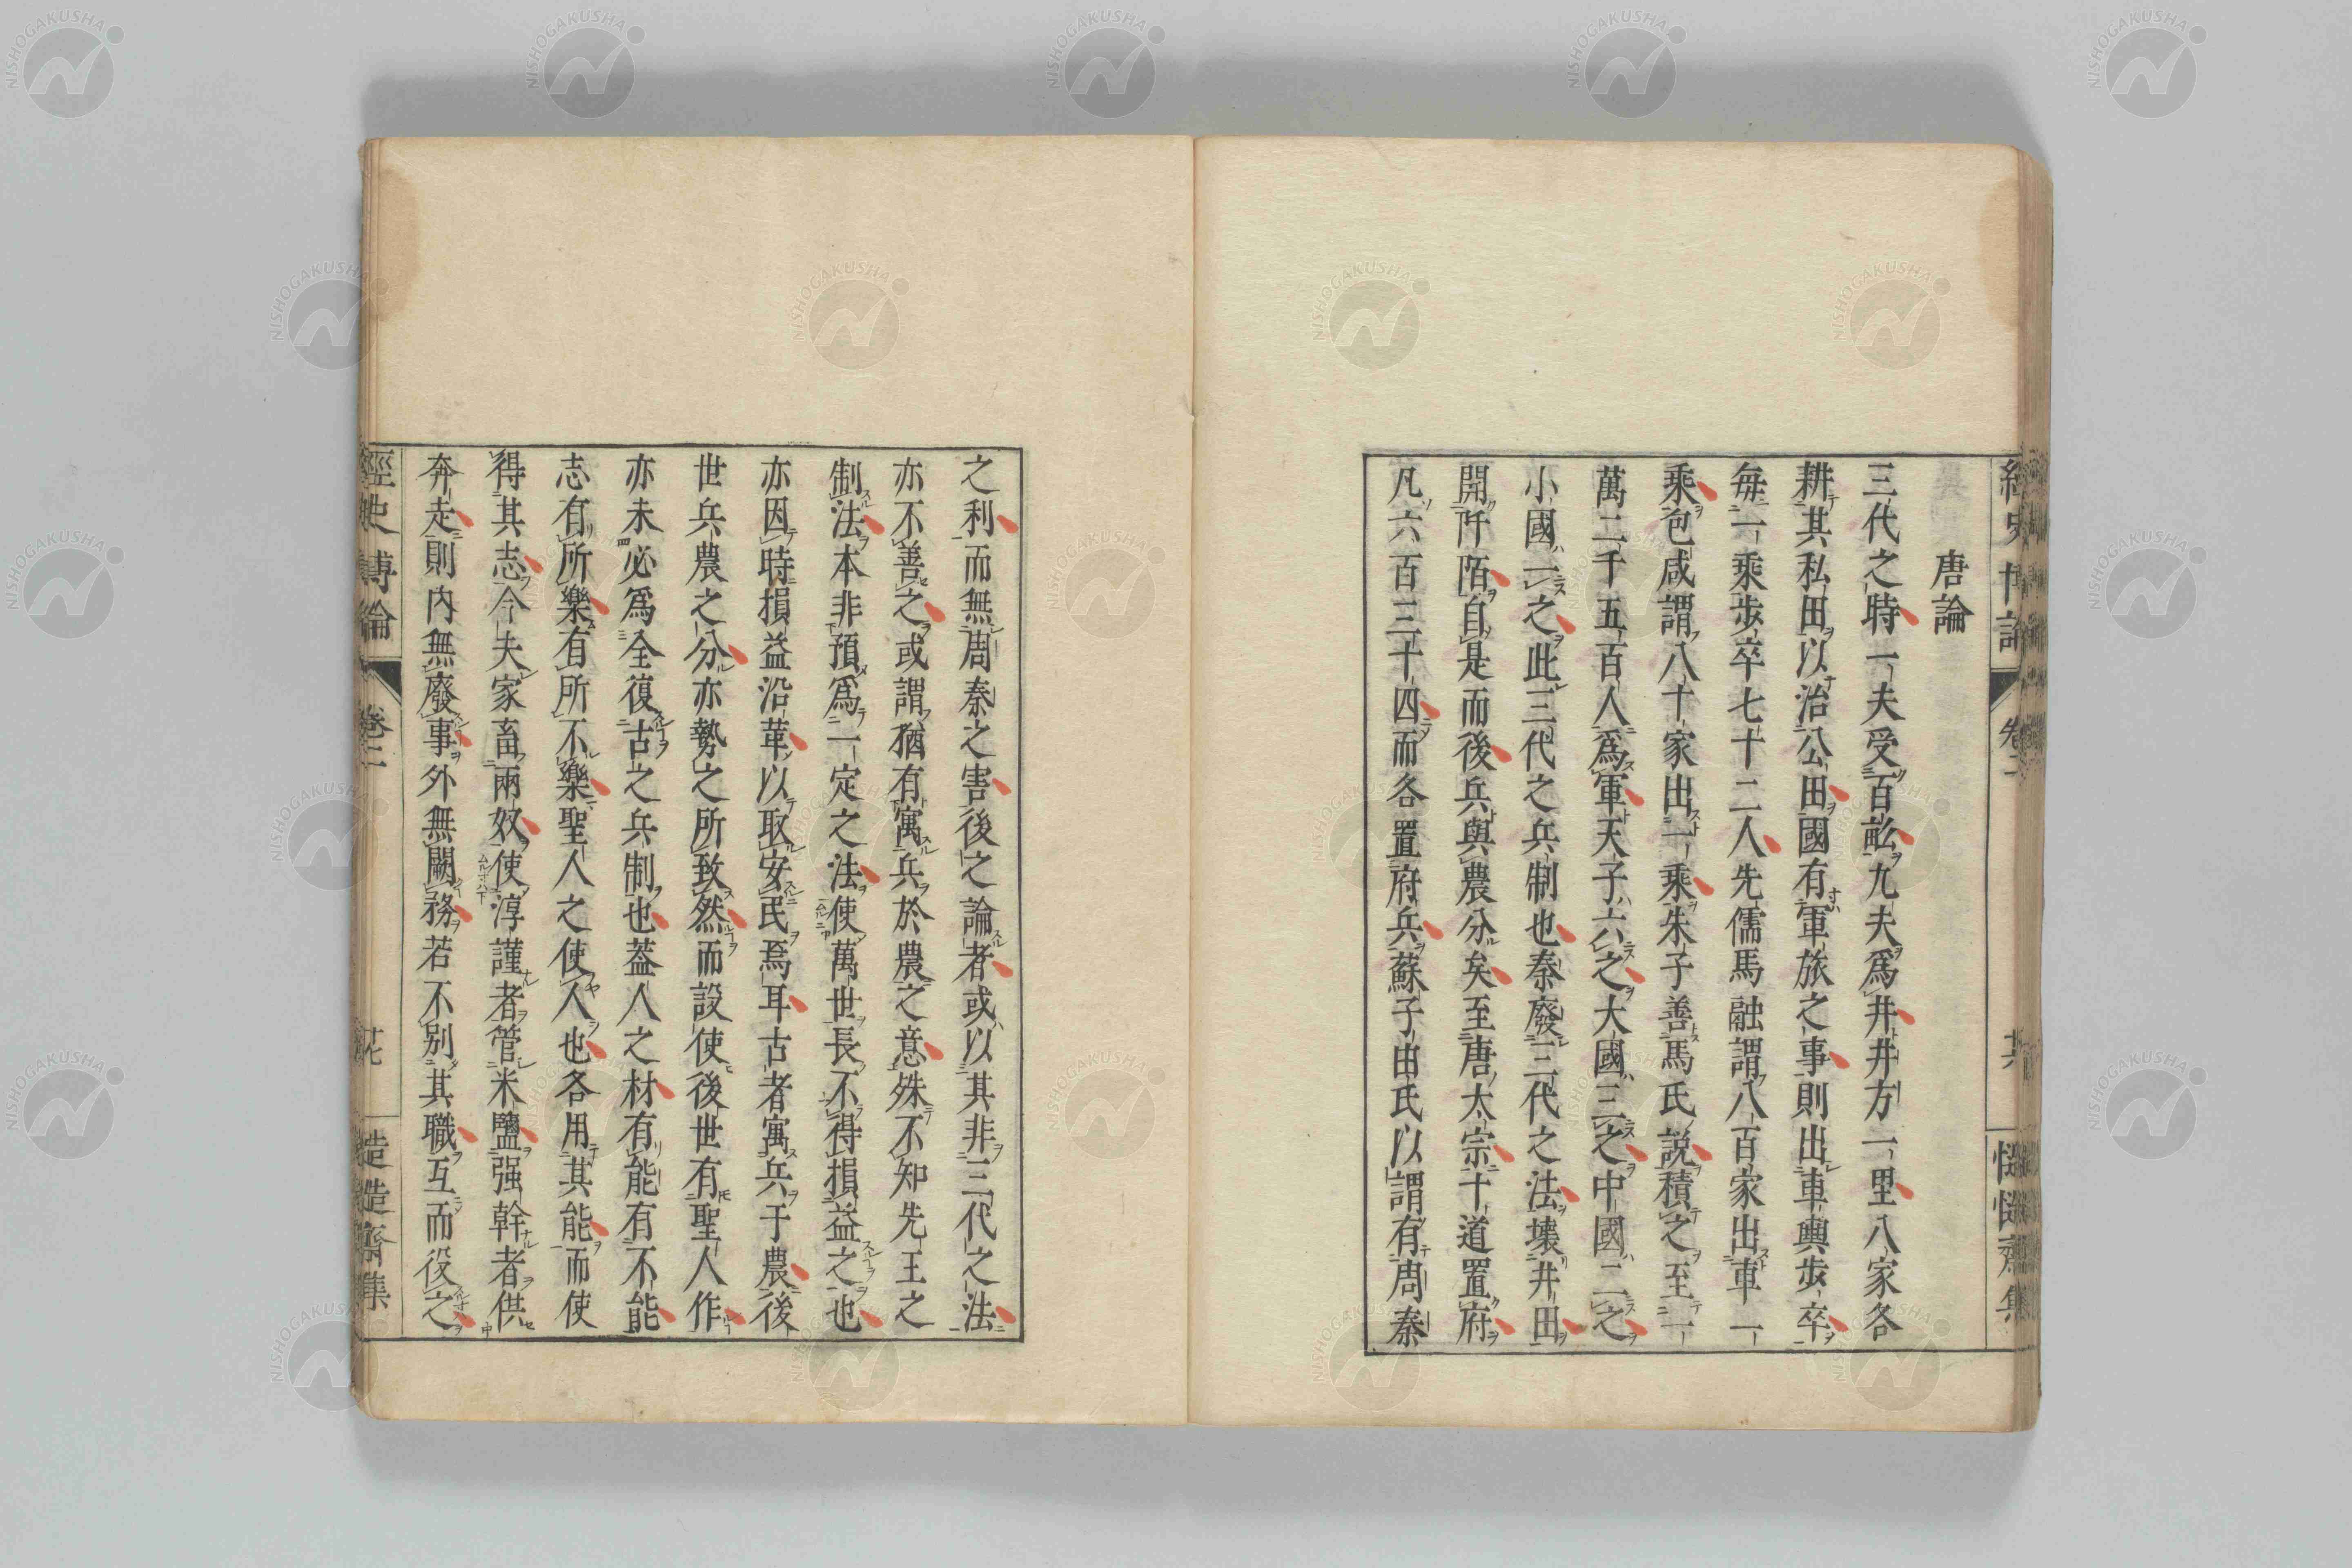 唐論
三代之時一夫受百畝九夫爲井井方一里八家各
耕其私田以治公田國有軍旅之事則出車輿步卒
每一乘步卒七十二人先儒馬融謂八百家出車一
乘包咸謂八十家出一乘朱子善馬氏說積之至一
萬二千五百人爲軍天子六之大國三之中國二之
小國一之此三代之兵制也秦廢三代之法壞井田
開阡陌自是而後兵與農分矣至唐太宗十道置府
凡六百三十四而各置府兵蘇子由氏以謂有周秦
之利而無周秦之害後之論者或以其非三代之法
亦不善之或謂猶有寓兵於農之意殊不知先王之
制法本非預爲一定之法使萬世長不得損益之也
亦因時損益沿革以取安民焉耳古者寓兵于農後
世兵農之分亦勢之所致然而設使後世有聖人作
亦未必爲全復古之兵制也蓋人之材有能有不能
志有所樂有所不樂聖人之使人也各用其能而使
得其志今夫家畜兩奴使淳謹者管米鹽强幹者供
奔走則內無廢事外無闕務若不別其職互而役之
經史博論
卷二
NISHOGAKUSHA